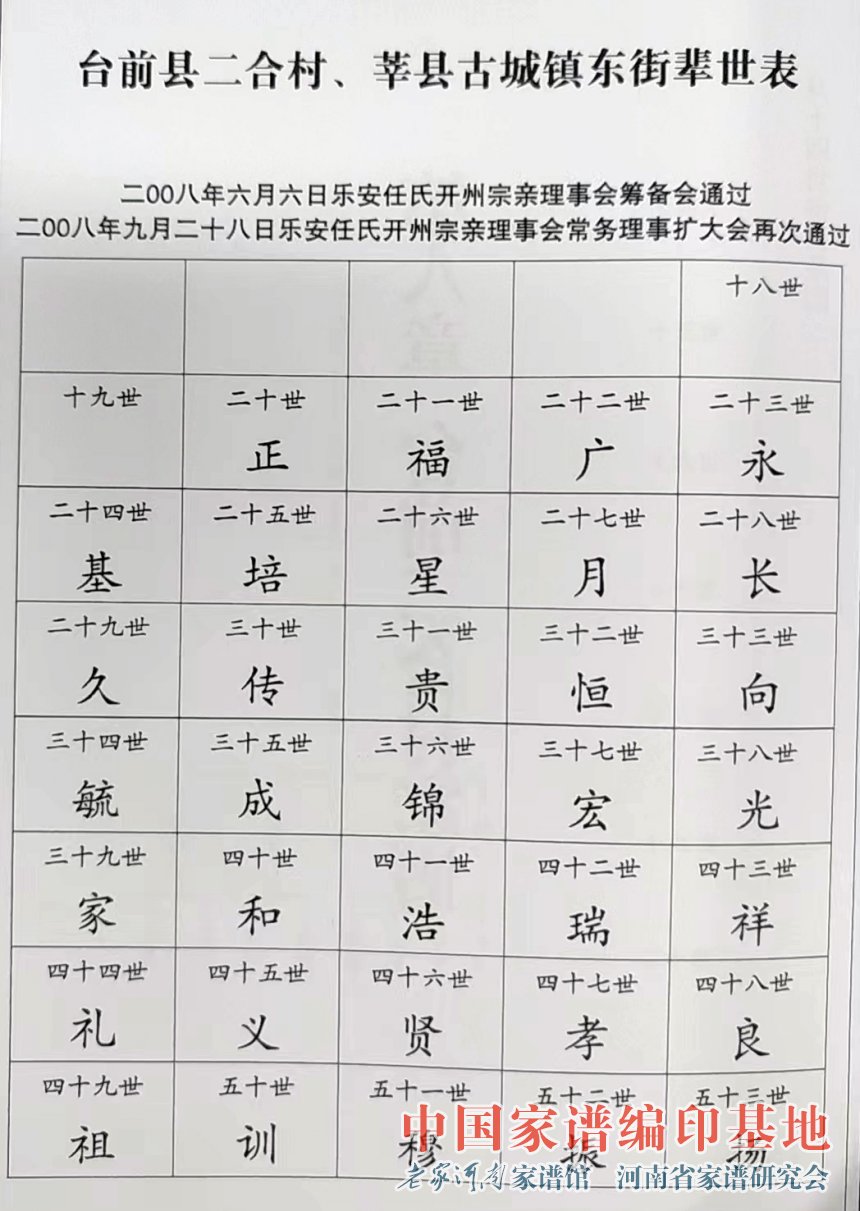 台前县二合村、莘县古城镇东街辈世表
二00八年六月六日乐安任氏开州宗亲理事会筹备会通过
二00八年九月二十八日乐安任氏开州宗亲理事会常务理事扩大会再次通过
十八世
十九世 二十世 二十一世 二十二世 二十三世
正 福 广 永
二十四世 二十五世 二十六世 二十七世 二十八世
基 培 星 月 长
二十九世 三十世 三十一世 三十二世 三十三世
久 传 贵 恒 向
三十四世 三十五世 三十六世 三十七世 三十八世
毓 成 锦 宏 光
三十九世 四十世 四十一世 四十二世 四十三世
家 和 浩 瑞 祥
四十四世 四十五世 四十六世 四十七世 四十八世
礼 义 贤 孝 良
四十九世 五十世 五十一世 五十二世 五十三世
祖 训 穆 振 扬
中国家谱编印基地
老家河南家谱馆 河南省家谱研究会